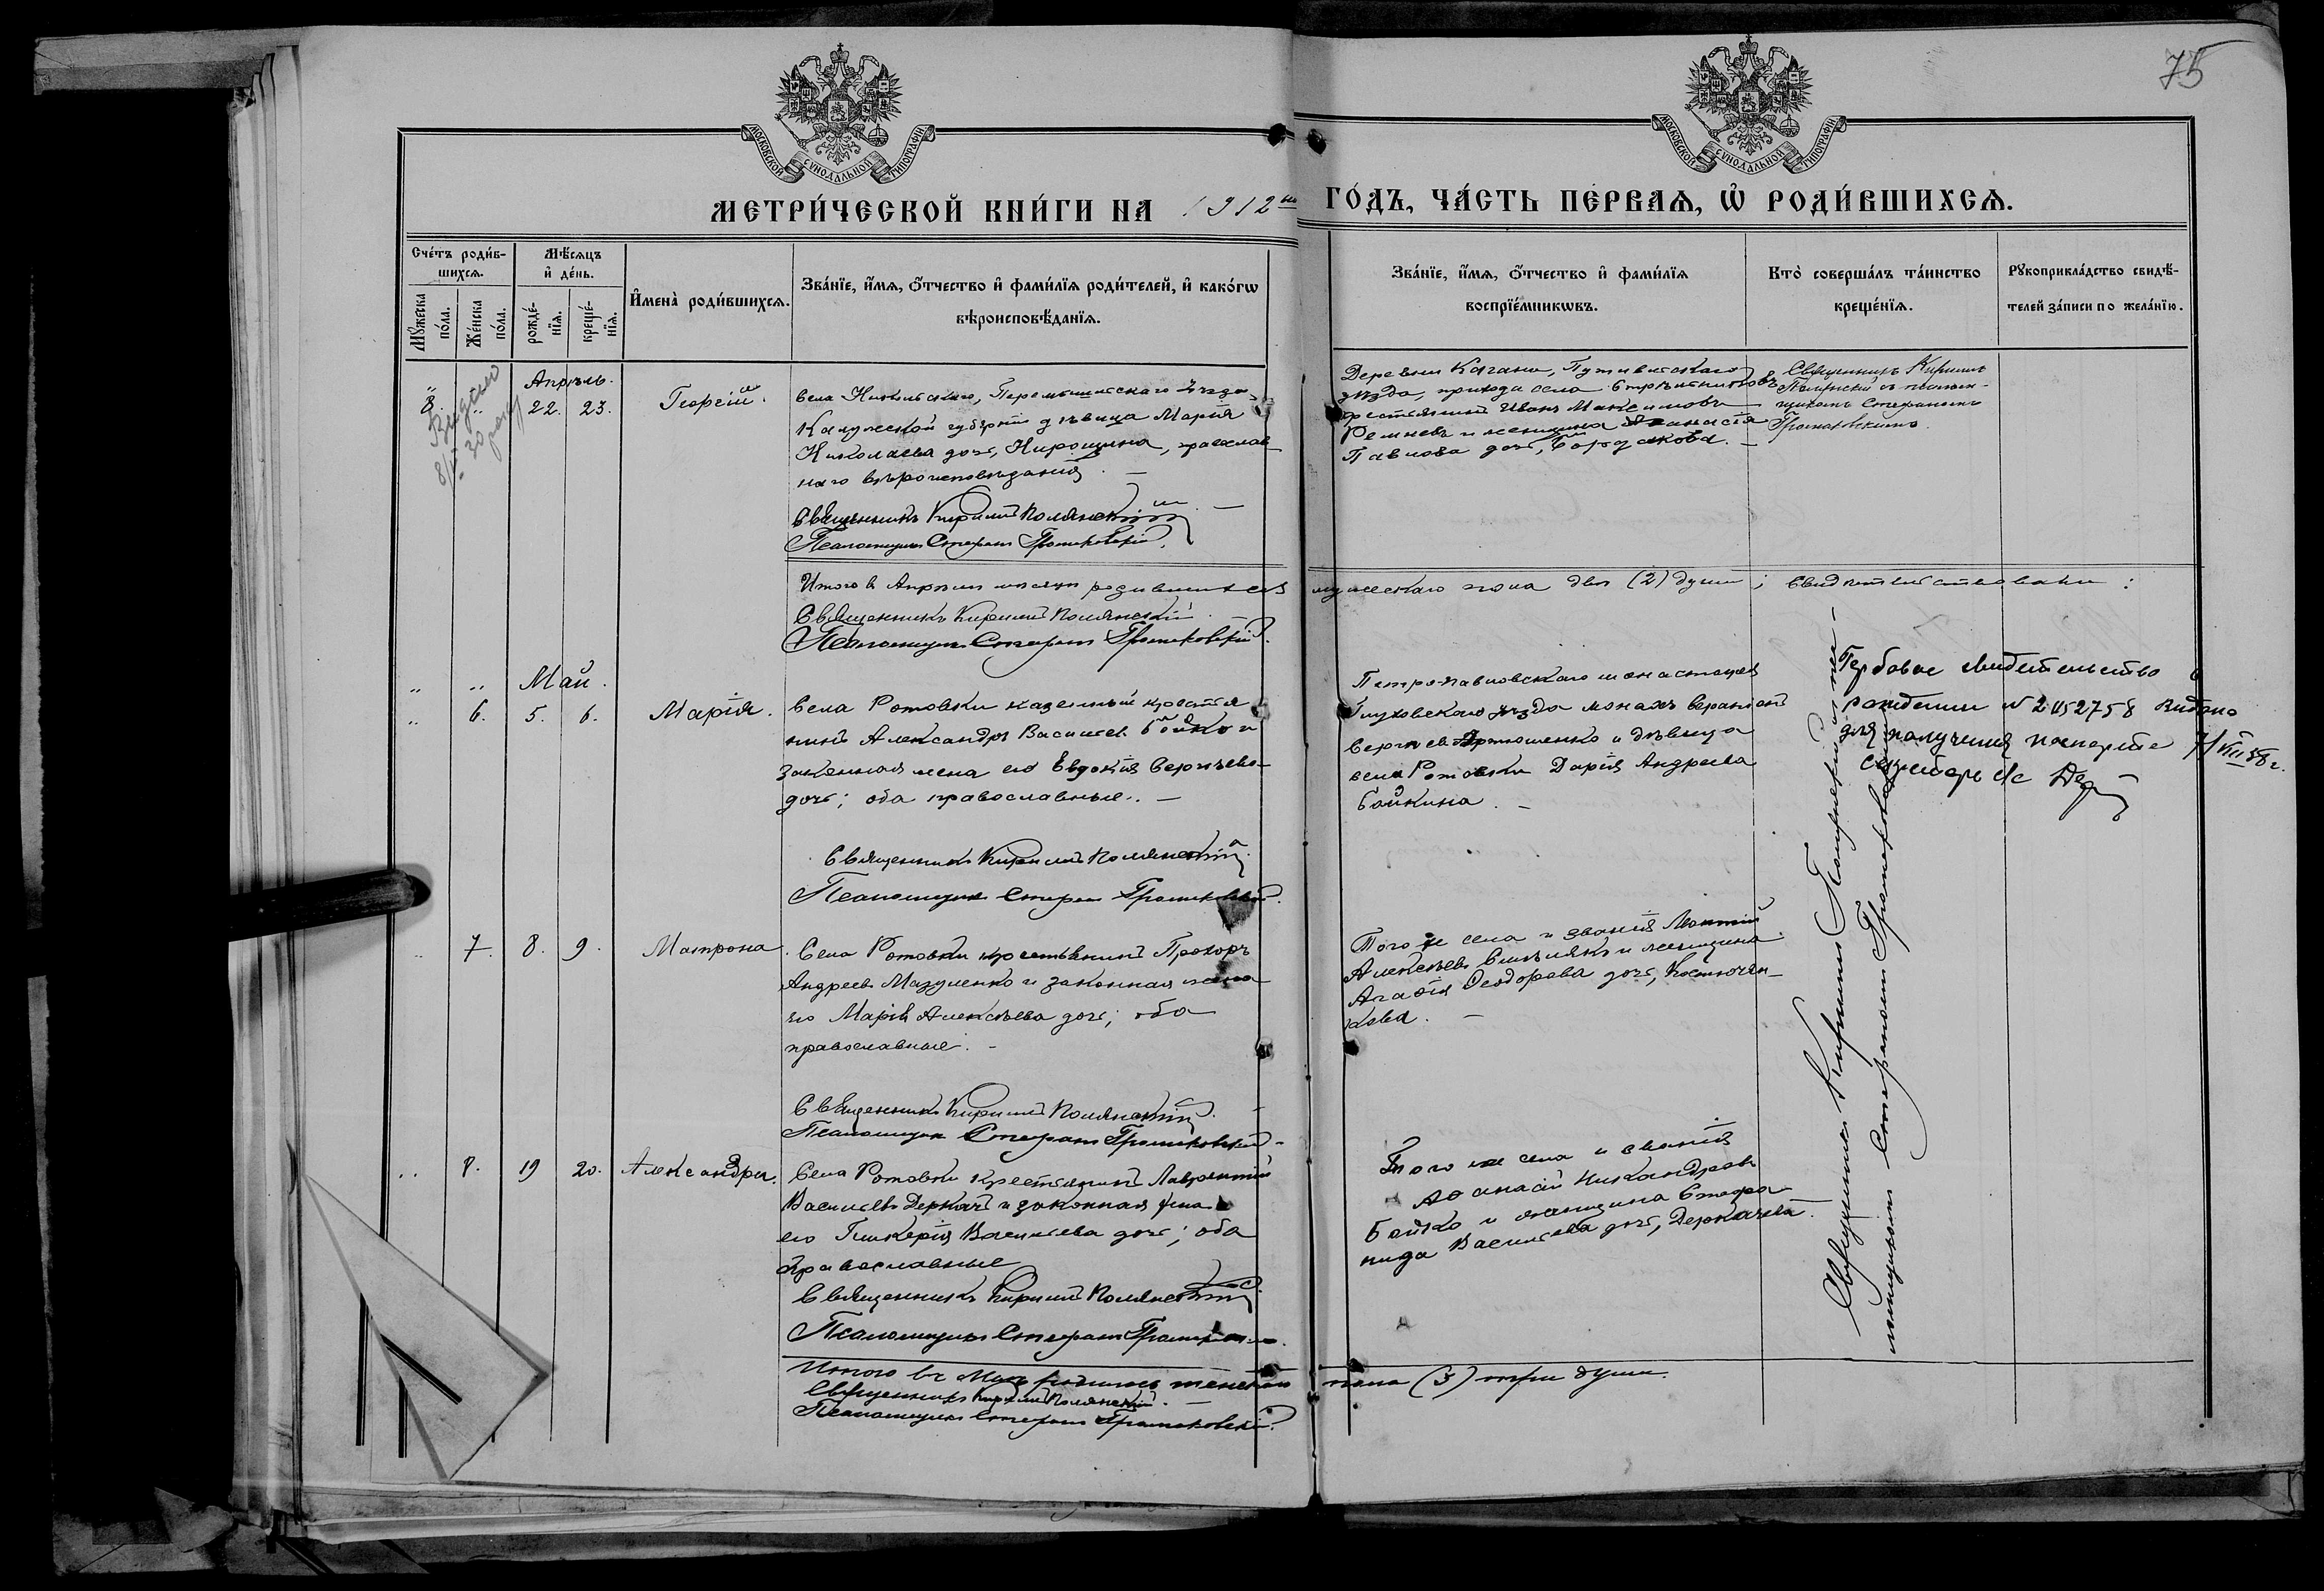 75
МОСКОВСКОЙ СѴНОДАЛЬНОЙ ТИПОГРАФІИ
МОСКОВСКОЙ СѴНОДАЛЬНОЙ ТИПОГРАФІИ
МЕТРИ́ЧЕСКОЙ КНИ́ГИ НА 1912й ГО́ДЪ, ЧА́СТЬ ПЕ́РВАѦ, Ѡ РОДИ́ВШИХСѦ.
Сче́тъ роди́в-
шихсѧ.
Мꙋ́жеска по́ла.
Же́нска по́ла.
Мѣ́сѧцъ
и де́нь.
рожде́-
нїѧ.
креще́-
нїѧ.
Имена̀ роди́вшихсѧ.
Зва́нїе, и́мѧ, о́тчество и фами́лїѧ роди́телей, и како́гѡ
вѣроисповѣ́данїѧ.
Зва́нїе, и́мѧ, о́тчество и фами́лїѧ
воспрїе́мникѡвъ.
Кто̀ соверша́лъ та́инство
креще́нїѧ.
Рꙋкоприкла́дство свидѣ́-
телей за́писи по жела́нїю.
Апрѣль.
8. " 22. 23. Георгій.
Села Никольскаго, Перемышльскаго уѣзда,
Калужской губерніи дѣвица Марія
Николаева дочь, Хирошина, православ
наго вѣроисповѣданія. —
Священникъ Кирилл Полянскій. —
Псаломщикъ Стефанъ Громаковскій.
Деревни Кагани, Путивльскаго
уѣзда, прихода села Стрѣльниковъ
крестьянинъ Иванъ Максимовъ
Ремневъ и женщина Аѳанасія
Павлова дочь, Бородакова. —
Священникъ Кириллъ
Полянскій съ псалом-
щикомъ Стефаномъ
Громаковскимъ.
Итого в Апрѣлѣ мѣсяцѣ родившихся мужескаго пола двѣ (2) души; Свидѣтельствовали:
Священникъ Кирилл Полянскій
Псаломщикъ Стефанъ Громаковскій.
" " Май.
" 6. 5. 6. Марія.
Села Ротовки казенный крестья
нинъ Александръ Васильев Бойко и
законная жена его Евдокія Сергѣева
дочь; оба православные. —
Священникъ Кирилл Полянскій.
Псаломщикъ Стефан Громаковскій.
Петропавловскаго монастыря
Глуховскаго уѣзда монахъ Серапіонъ
Сергѣев Артюшенко и дѣвица
села Ротовки Дарія Андреева
Бойкина. —
Гербовое свидетельство о
рождении № 2052758 выдано
для получения паспорта 7/VIII 38г.
Секретарь с/с
" 7. 8. 9. Матрона.
Села Ротовки крестьянинъ Прохоръ
Андреев Мазуленко и законная жена
его Марія Алексѣева дочь; оба
православные. —
Священникъ Кирилл Полянскій. —
Псаломщикъ Стефанъ Громаковскій. —
Того же села и званія
Алексѣевъ и женщина
Агаѳія Ѳеодорова дочь, Костючен-
кова. —
" 8. 19 20. Александра.
Села Ротовки крестьянинъ Лаврентій
Васильевъ Деркачъ и законная жена
его Гликерія Васильева дочь; оба
православные
Священникъ Кирилл Полянскій.
Псаломщикъ Стефанъ Громаковскій.
Того же села и званія
Аѳанасій Никандровъ
Бойко и женщина Стефа
нида Васильева дочь, Деркачева.
Священникъ Кириллъ Полянскій съ пса-
ломщикомъ Стефаномъ Громаковскимъ
Итого въ Маѣ родилось женскаго пола (3) три души.
Священникъ Кирилл Полянскій. —
Псаломщикъ Стефанъ Громаковскій.